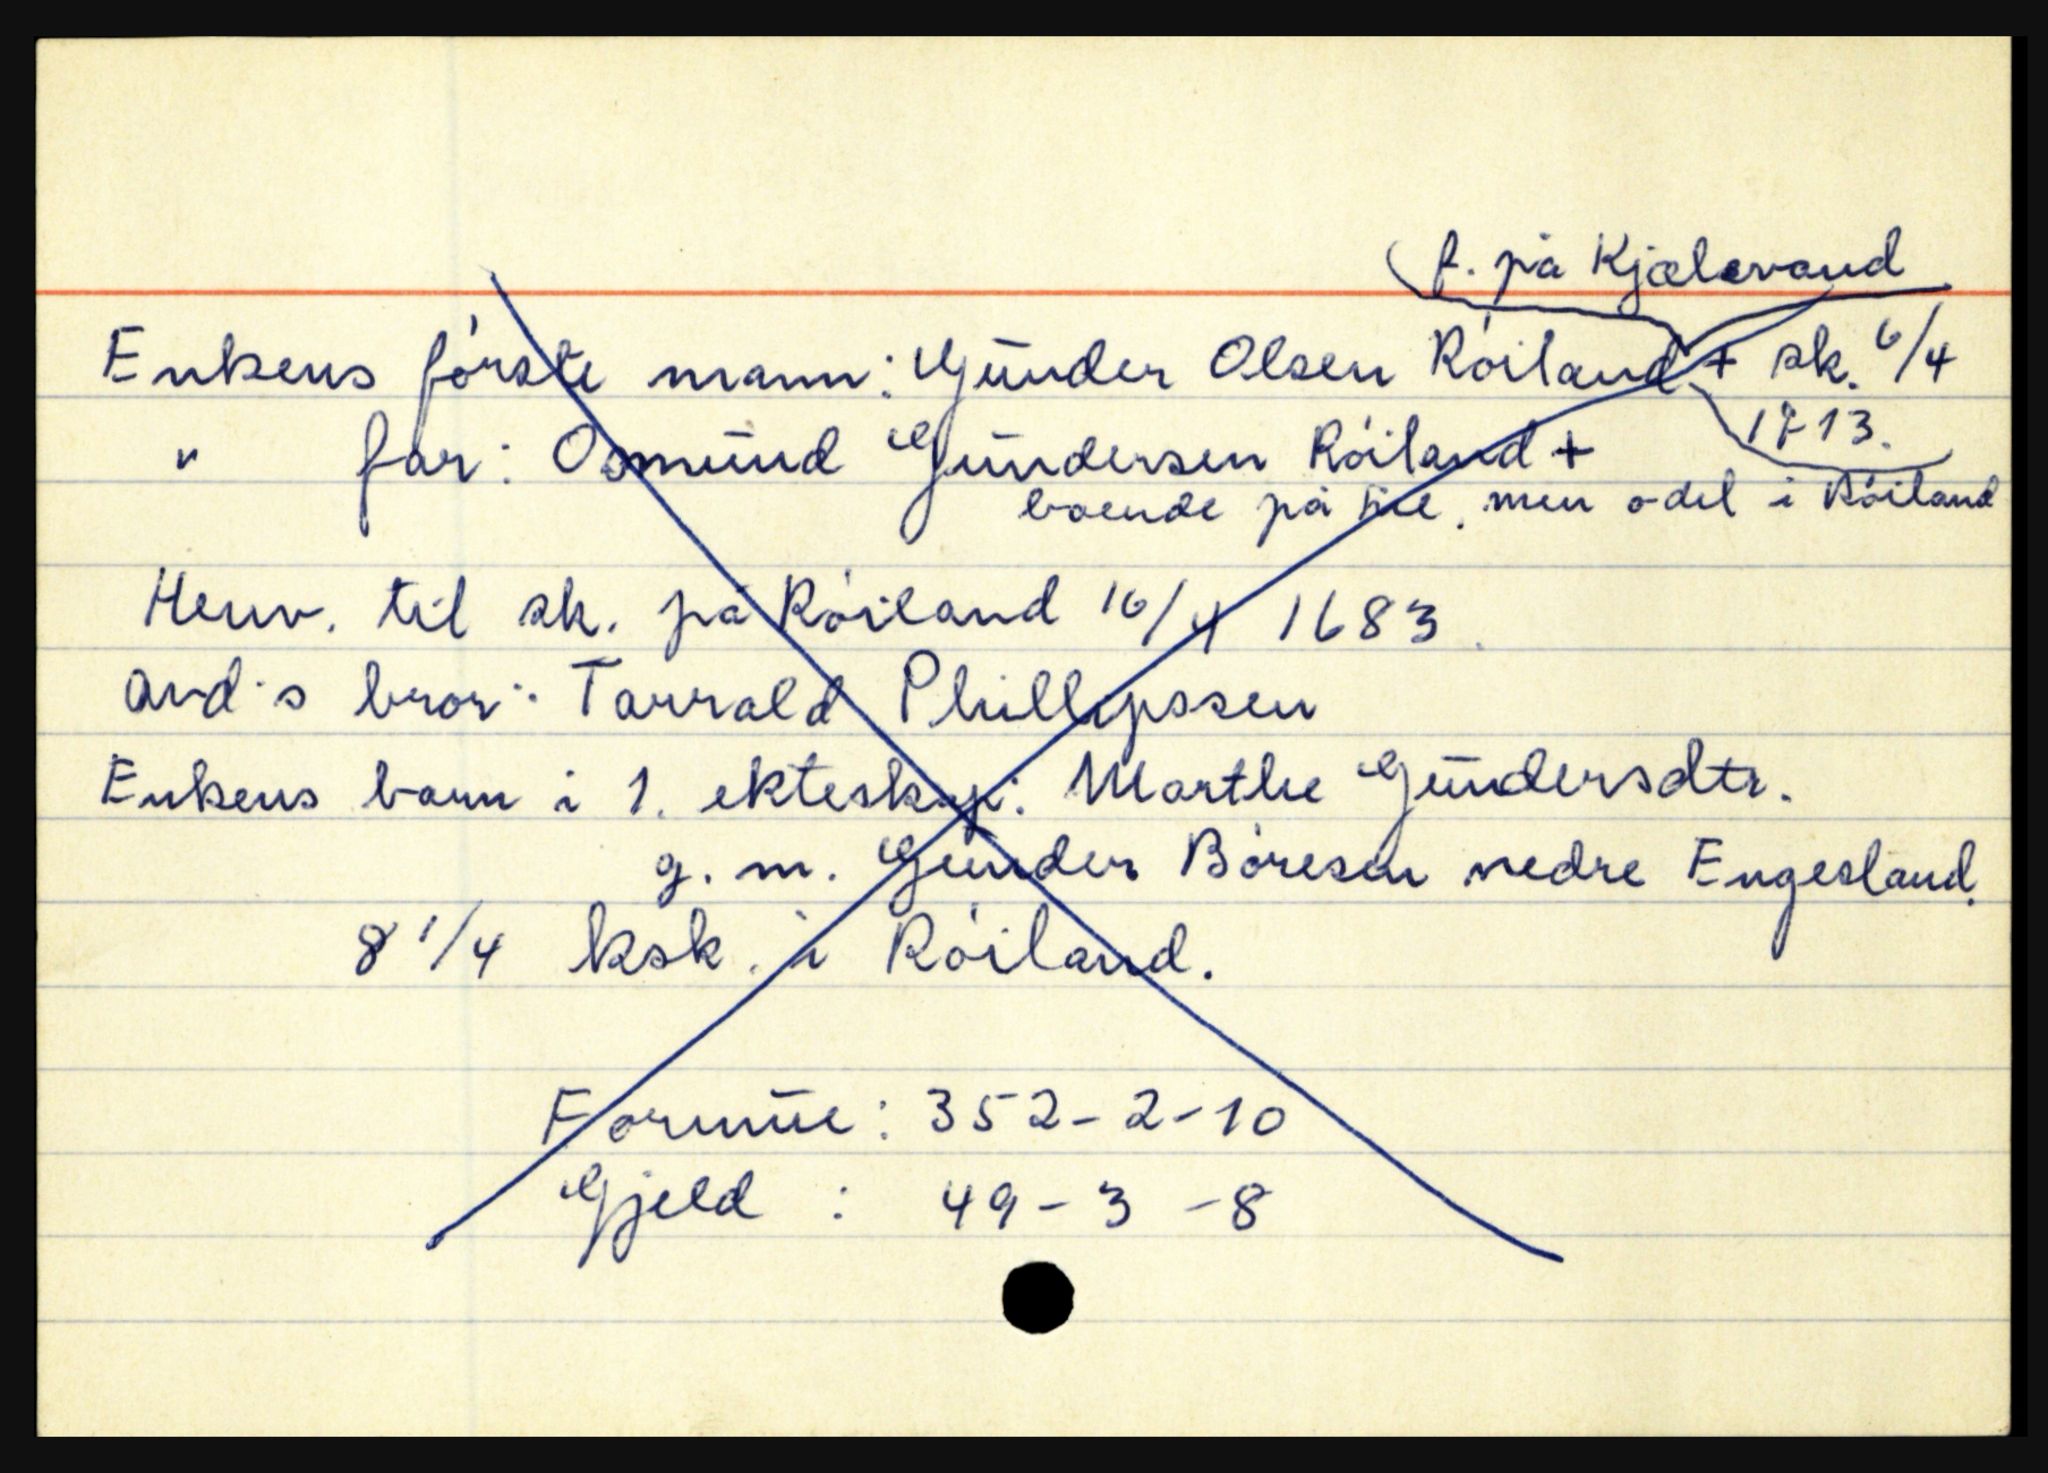 f. på Kjælevand
Enkens første mann: Gunder Olsen Røiland + sk. 6/4
1713.
" far: Osmund Gundersen Røiland +
boende på men odel i Røiland
Henv. til sk. på Røiland 16/4 1683.
avd's bror: Tarrald Phillipssen
Enkens barn i 1. ekteskap: Marthe Gundersdtr.
g. m. Gunder Børesen nedre Engesland.
8 1/4 ksk. i Røiland.
Formue: 352-2-10
Gjeld : 49-3-8